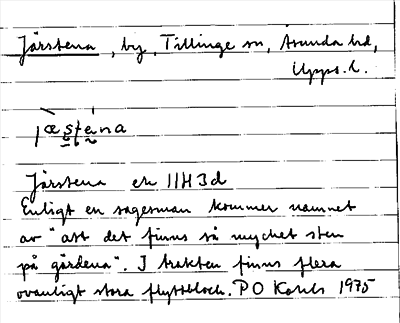 Järstena, by, Tillinge sn, Åsunda hd,
Upps. l.
Järstena ek 11H3d
Enligt en sagesman kommer namnet
av "att det finns så mycket sten
på gärdena". I trakten finns flera
ovanligt stora flyttblock. P O 1975